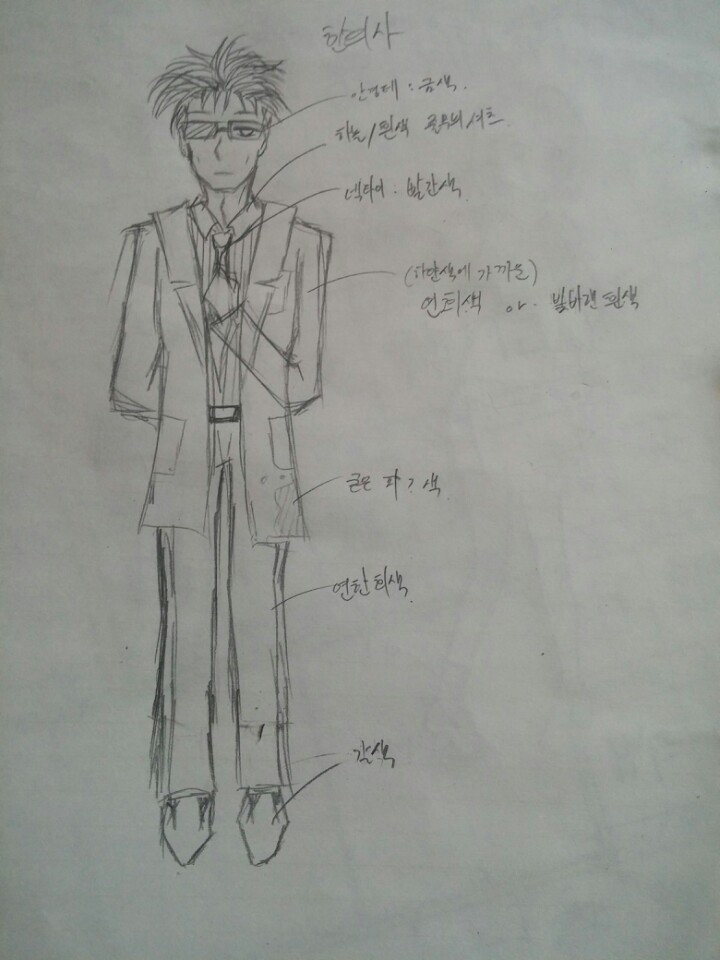 한의사
안경테 : 금색.
하늘/흰색 줄무늬 셔츠.
넥타이 : 빨간색
(하단색에 가까운)
연회색 or 빛바랜 흰색
묽은 색
연한 회색
갈색